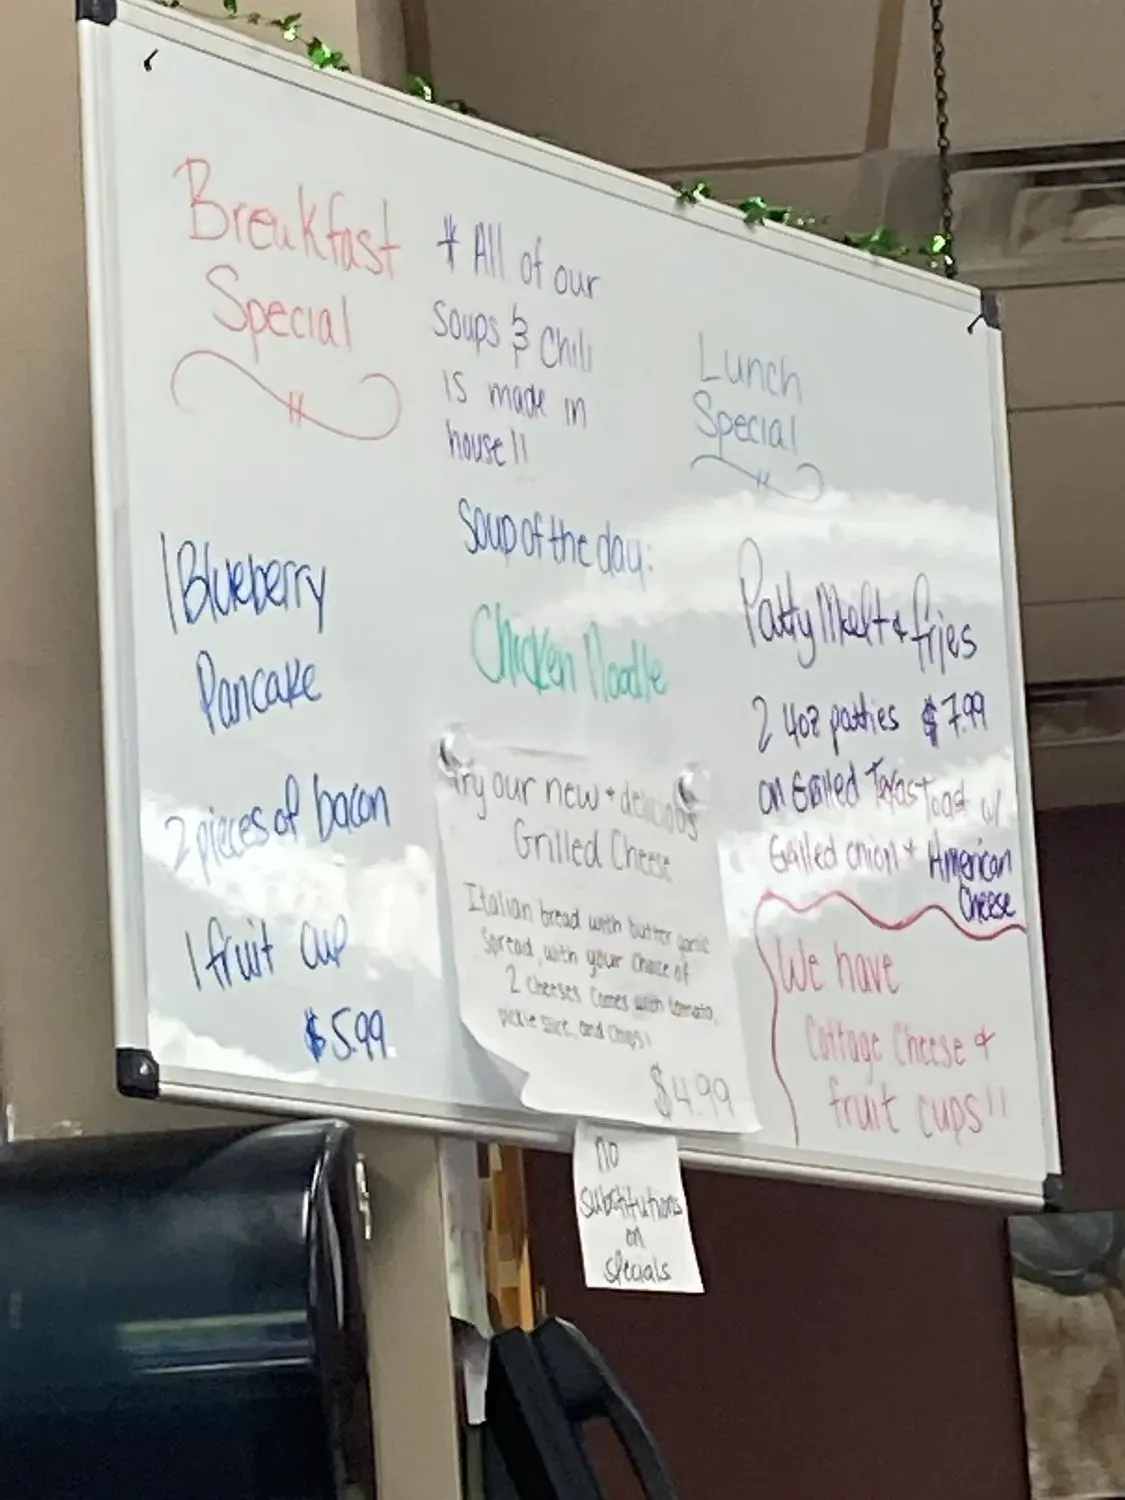 Breakfast
Special
* All of our
Soups & Chili
is made in
house!!
Lunch
Special
1 Blueberry
Pancake
2 pieces of bacon
1 fruit cup
$5.99
Soup of the day:
Chicken Noodle
Try our new + delicious
Grilled Cheese
Italian bread with butter garlic
Spread, with your choice of
2 cheeses comes with tomato,
pickle slice, and chips!
$4.99
Patty Melt & fries
2 4oz patties $7.99
on Grilled Texas Toast w/
Grilled onion + American
Cheese
We have
Cottage Cheese &
fruit cups!!
no
substitutions
on
specials